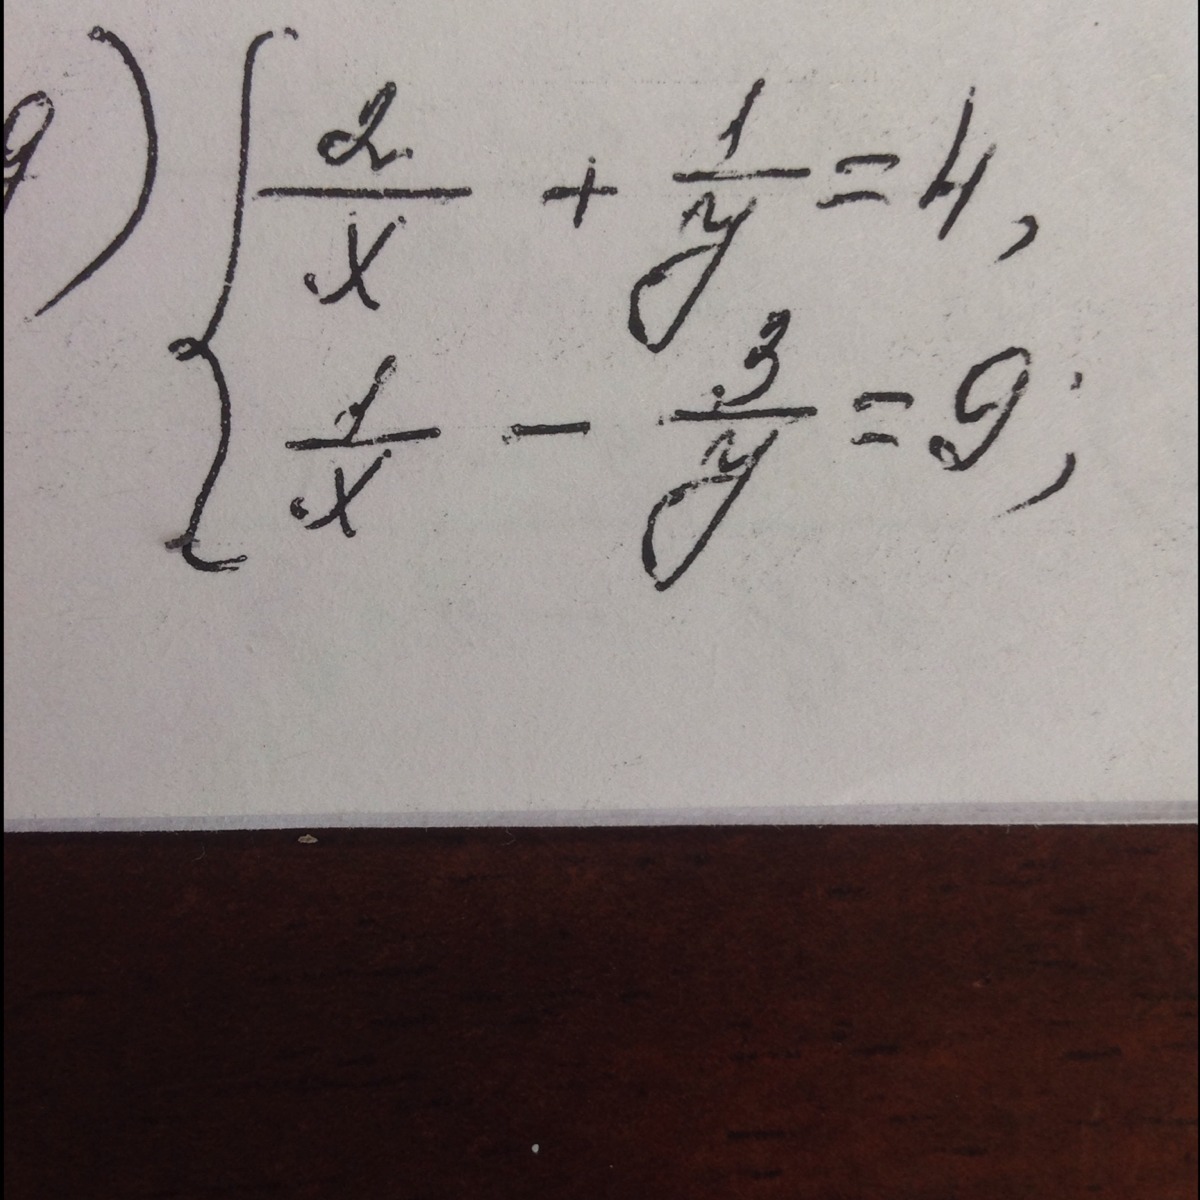 9) { 2/x + 1/y = 4,
1/x - 3/y = 9;